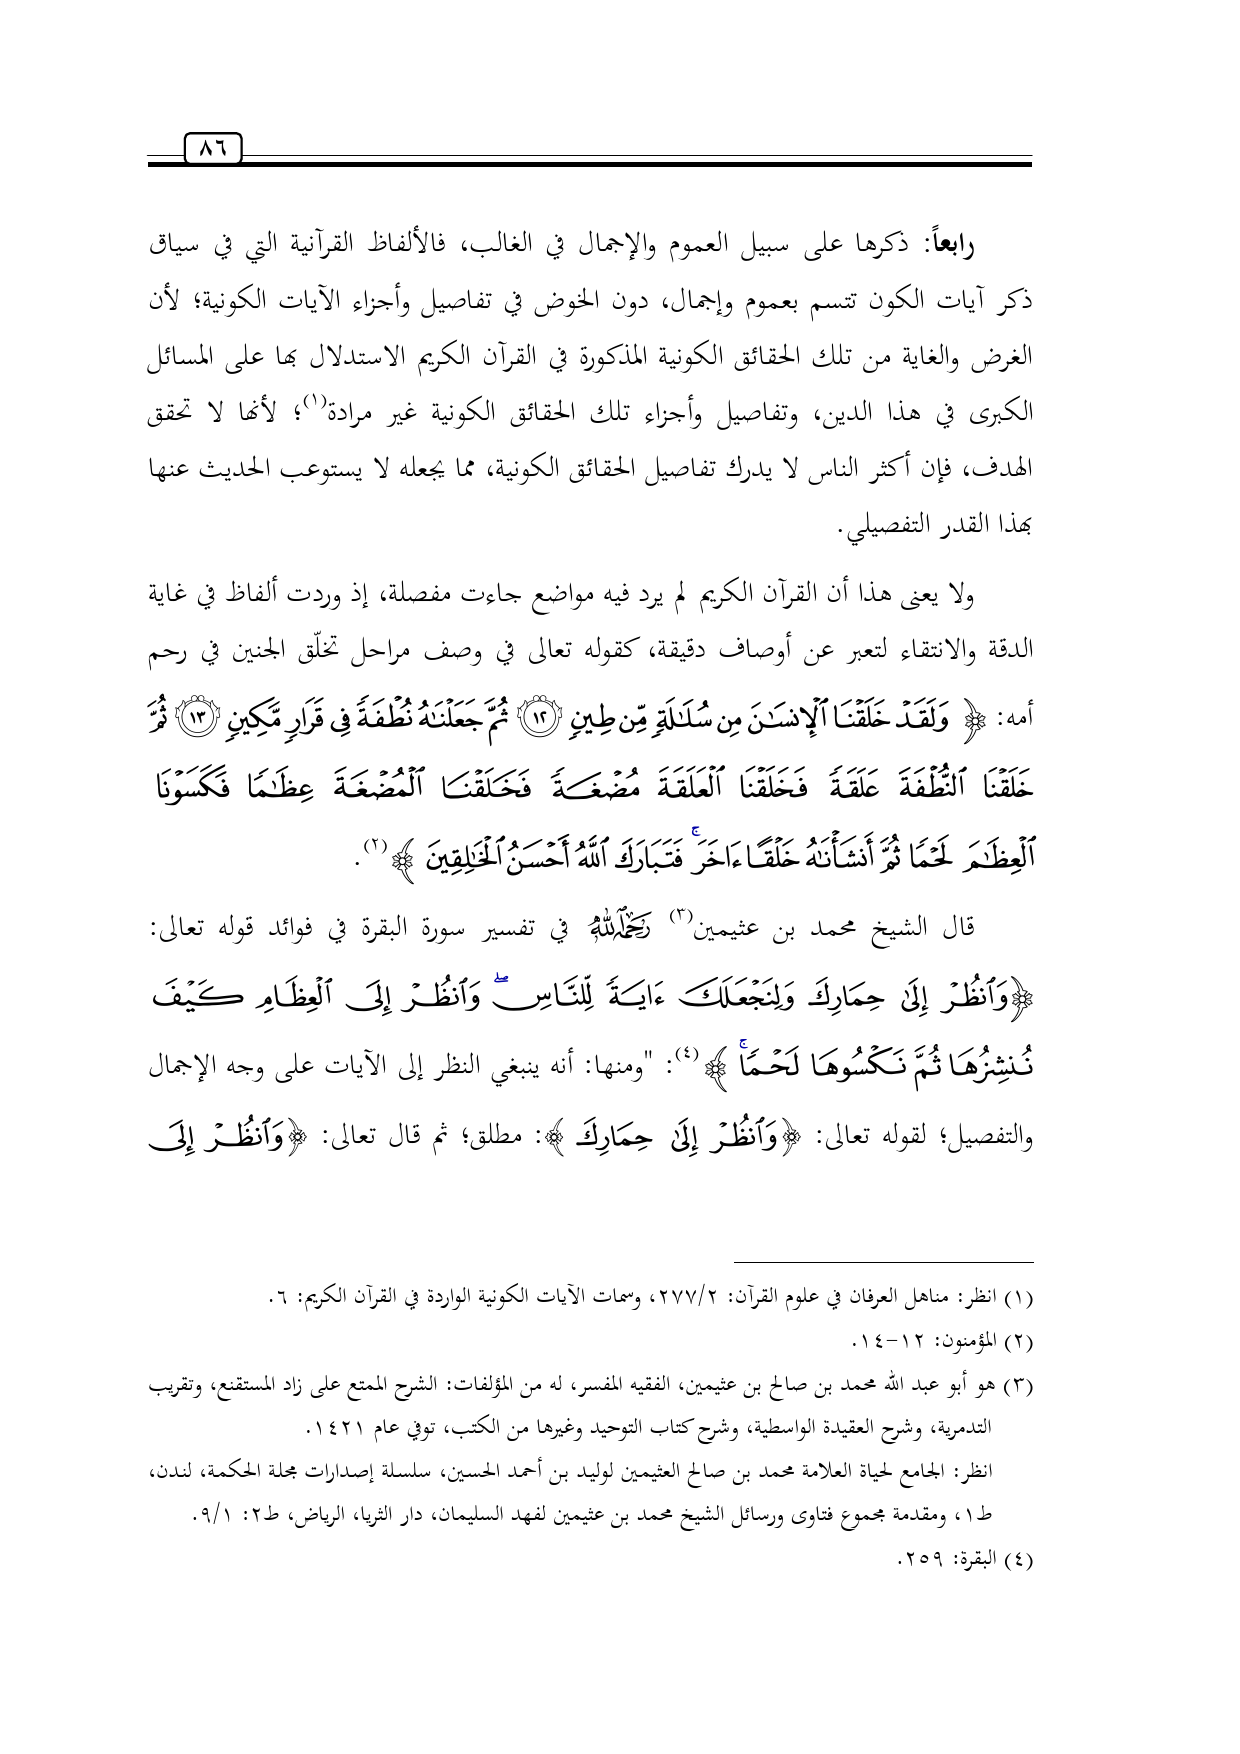 ٨٦
رابعاً: ذكرها على سبيل العموم والإجمال في الغالب، فالألفاظ القرآنية التي في سياق
ذكر آيات الكون تتسم بعموم وإجمال، دون الخوض في تفاصيل وأجزاء الآيات الكونية؛ لأن
الغرض والغاية من تلك الحقائق الكونية المذكورة في القرآن الكريم الاستدلال بها على المسائل
الكبرى في هذا الدين، وتفاصيل وأجزاء تلك الحقائق الكونية غير مرادة(١)؛ لأنها لا تحقق
الهدف، فإن أكثر الناس لا يدرك تفاصيل الحقائق الكونية، مما يجعله لا يستوعب الحديث عنها
بهذا القدر التفصيلي.
ولا يعنى هذا أن القرآن الكريم لم يرد فيه مواضع جاءت مفصلة، إذ وردت ألفاظ في غاية
الدقة والانتقاء لتعبر عن أوصاف دقيقة، كقوله تعالى في وصف مراحل تخلّق الجنين في رحم
أمه: ﴿ وَلَقَدْ خَلَقْنَا ٱلْإِنسَٰنَ مِن سُلَٰلَةٍ مِّن طِينٍ ١٢ ثُمَّ جَعَلْنَٰهُ نُطْفَةً فِى قَرَارٍ مَّكِينٍ ١٣ ثُمَّ
خَلَقْنَا ٱلنُّطْفَةَ عَلَقَةً فَخَلَقْنَا ٱلْعَلَقَةَ مُضْغَةً فَخَلَقْنَا ٱلْمُضْغَةَ عِظَٰمًا فَكَسَوْنَا
ٱلْعِظَٰمَ لَحْمًا ثُمَّ أَنشَأْنَٰهُ خَلْقًا ءَاخَرَ ۚ فَتَبَارَكَ ٱللَّهُ أَحْسَنُ ٱلْخَٰلِقِينَ ﴾(٢).
قال الشيخ محمد بن عثيمين(٣) رَحِمَهُ ٱللَّهُ في تفسير سورة البقرة في فوائد قوله تعالى:
﴿وَٱنظُرْ إِلَىٰ حِمَارِكَ وَلِنَجْعَلَكَ ءَايَةً لِّلنَّاسِ ۖ وَٱنظُرْ إِلَى ٱلْعِظَامِ كَيْفَ
نُنشِزُهَا ثُمَّ نَكْسُوهَا لَحْمًا ۚ ﴾(٤): "ومنها: أنه ينبغي النظر إلى الآيات على وجه الإجمال
والتفصيل؛ لقوله تعالى: ﴿وَٱنظُرْ إِلَىٰ حِمَارِكَ ﴾: مطلق؛ ثم قال تعالى: ﴿وَٱنظُرْ إِلَى
(١) انظر: مناهل العرفان في علوم القرآن: ٢٧٧/٢، وسمات الآيات الكونية الواردة في القرآن الكريم: ٦.
(٢) المؤمنون: ١٢-١٤.
(٣) هو أبو عبد الله محمد بن صالح بن عثيمين، الفقيه المفسر، له من المؤلفات: الشرح الممتع على زاد المستقنع، وتقريب
التدمرية، وشرح العقيدة الواسطية، وشرح كتاب التوحيد وغيرها من الكتب، توفي عام ١٤٢١.
انظر: الجامع لحياة العلامة محمد بن صالح العثيمين لوليد بن أحمد الحسين، سلسلة إصدارات مجلة الحكمة، لندن،
ط١، ومقدمة مجموع فتاوى ورسائل الشيخ محمد بن عثيمين لفهد السليمان، دار الثريا، الرياض، ط٢: ٩/١.
(٤) البقرة: ٢٥٩.